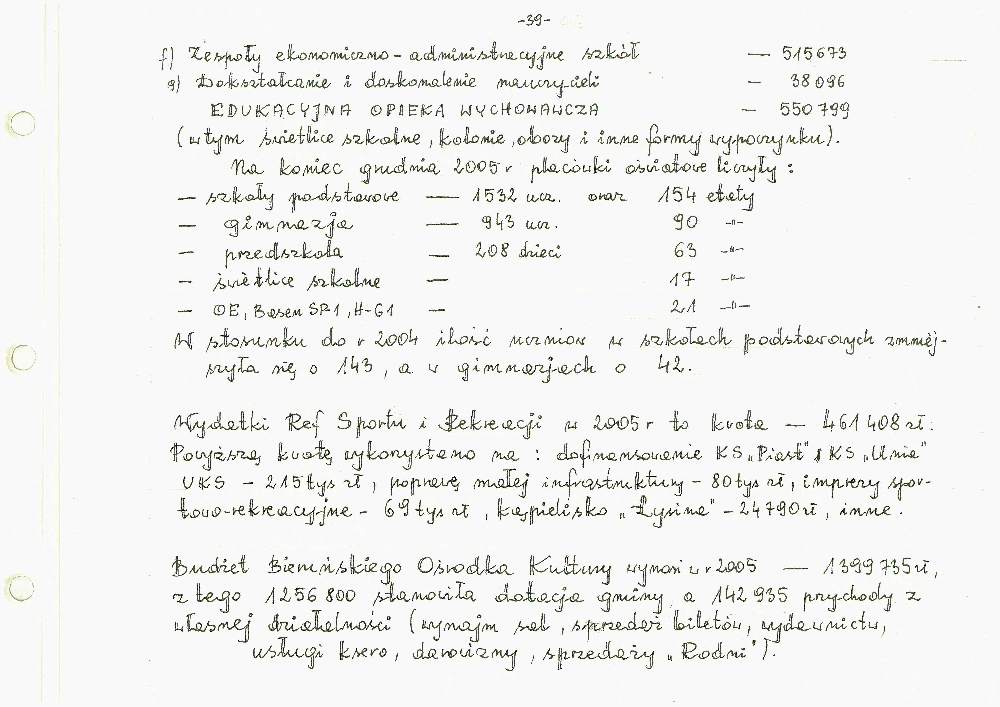 -39-
f) Zespoły ekonomiczno-administracyjne szkół — 515673
g) Dokształcanie i doskonalenie nauczycieli — 38096
EDUKACYJNA OPIEKA WYCHOWAWCZA — 550799
(w tym świetlice szkolne, kolonie, obozy i inne formy wypoczynku).
Na koniec grudnia 2005 r placówki oświatowe liczyły:
— szkoły podstawowe — 1532 ucz. oraz 154 etaty
— gimnazja — 943 ucz. 90 -"-
— przedszkola — 208 dzieci 63 -"-
— świetlice szkolne — 17 -"-
— OE, Basen SP1, H-G1 — 21 -"-
W stosunku do r 2004 ilość uczniów w szkołach podstawowych zmniej-
szyła się o 143, a w gimnazjach o 42.
Wydatki Ref Sportu i Rekreacji w 2005 r to kwota — 461 408 zł.
Powyższą kwotę wykorzystano na: dofinansowanie KS „Piast" i KS „Unia"
UKS – 215 tys zł, poprawę małej infrastruktury – 80 tys zł, imprezy spor-
towo-rekreacyjne – 69 tys zł, kąpielisko „Łysina" – 24790 zł, inne.
Budżet Bieruńskiego Ośrodka Kultury wynosi w r 2005 — 1399735 zł,
z tego 1256800 stanowiła dotacja gminy a 142935 przychody z
własnej działalności (wynajm sal, sprzedaż biletów, wydawnictw,
usługi ksero, darowizny, sprzedaży „Rodni").